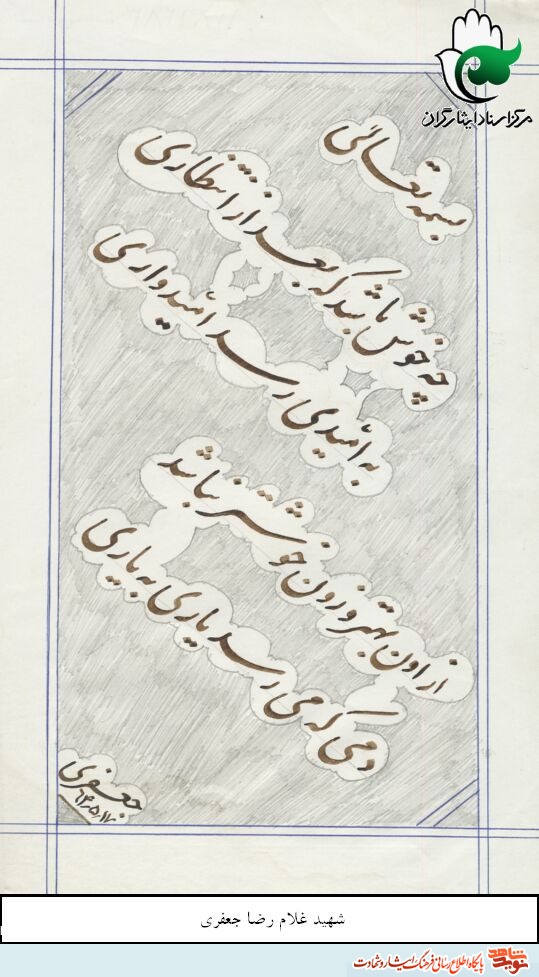 مرکز اسناد ایثارگران
بسمه تعالی
چه خوش باشد که بعد از انتظاری
به امیدی رسد امیدواری
از اون بهتر وزون خوشتر نباشد
دمی که می رسد یاری به یاری
جعفری
۶۴٫۵٫۱۷
شهید غلام رضا جعفری
نوید شاهد پایگاه اطلاع رسانی فرهنگ ایثار و شهادت